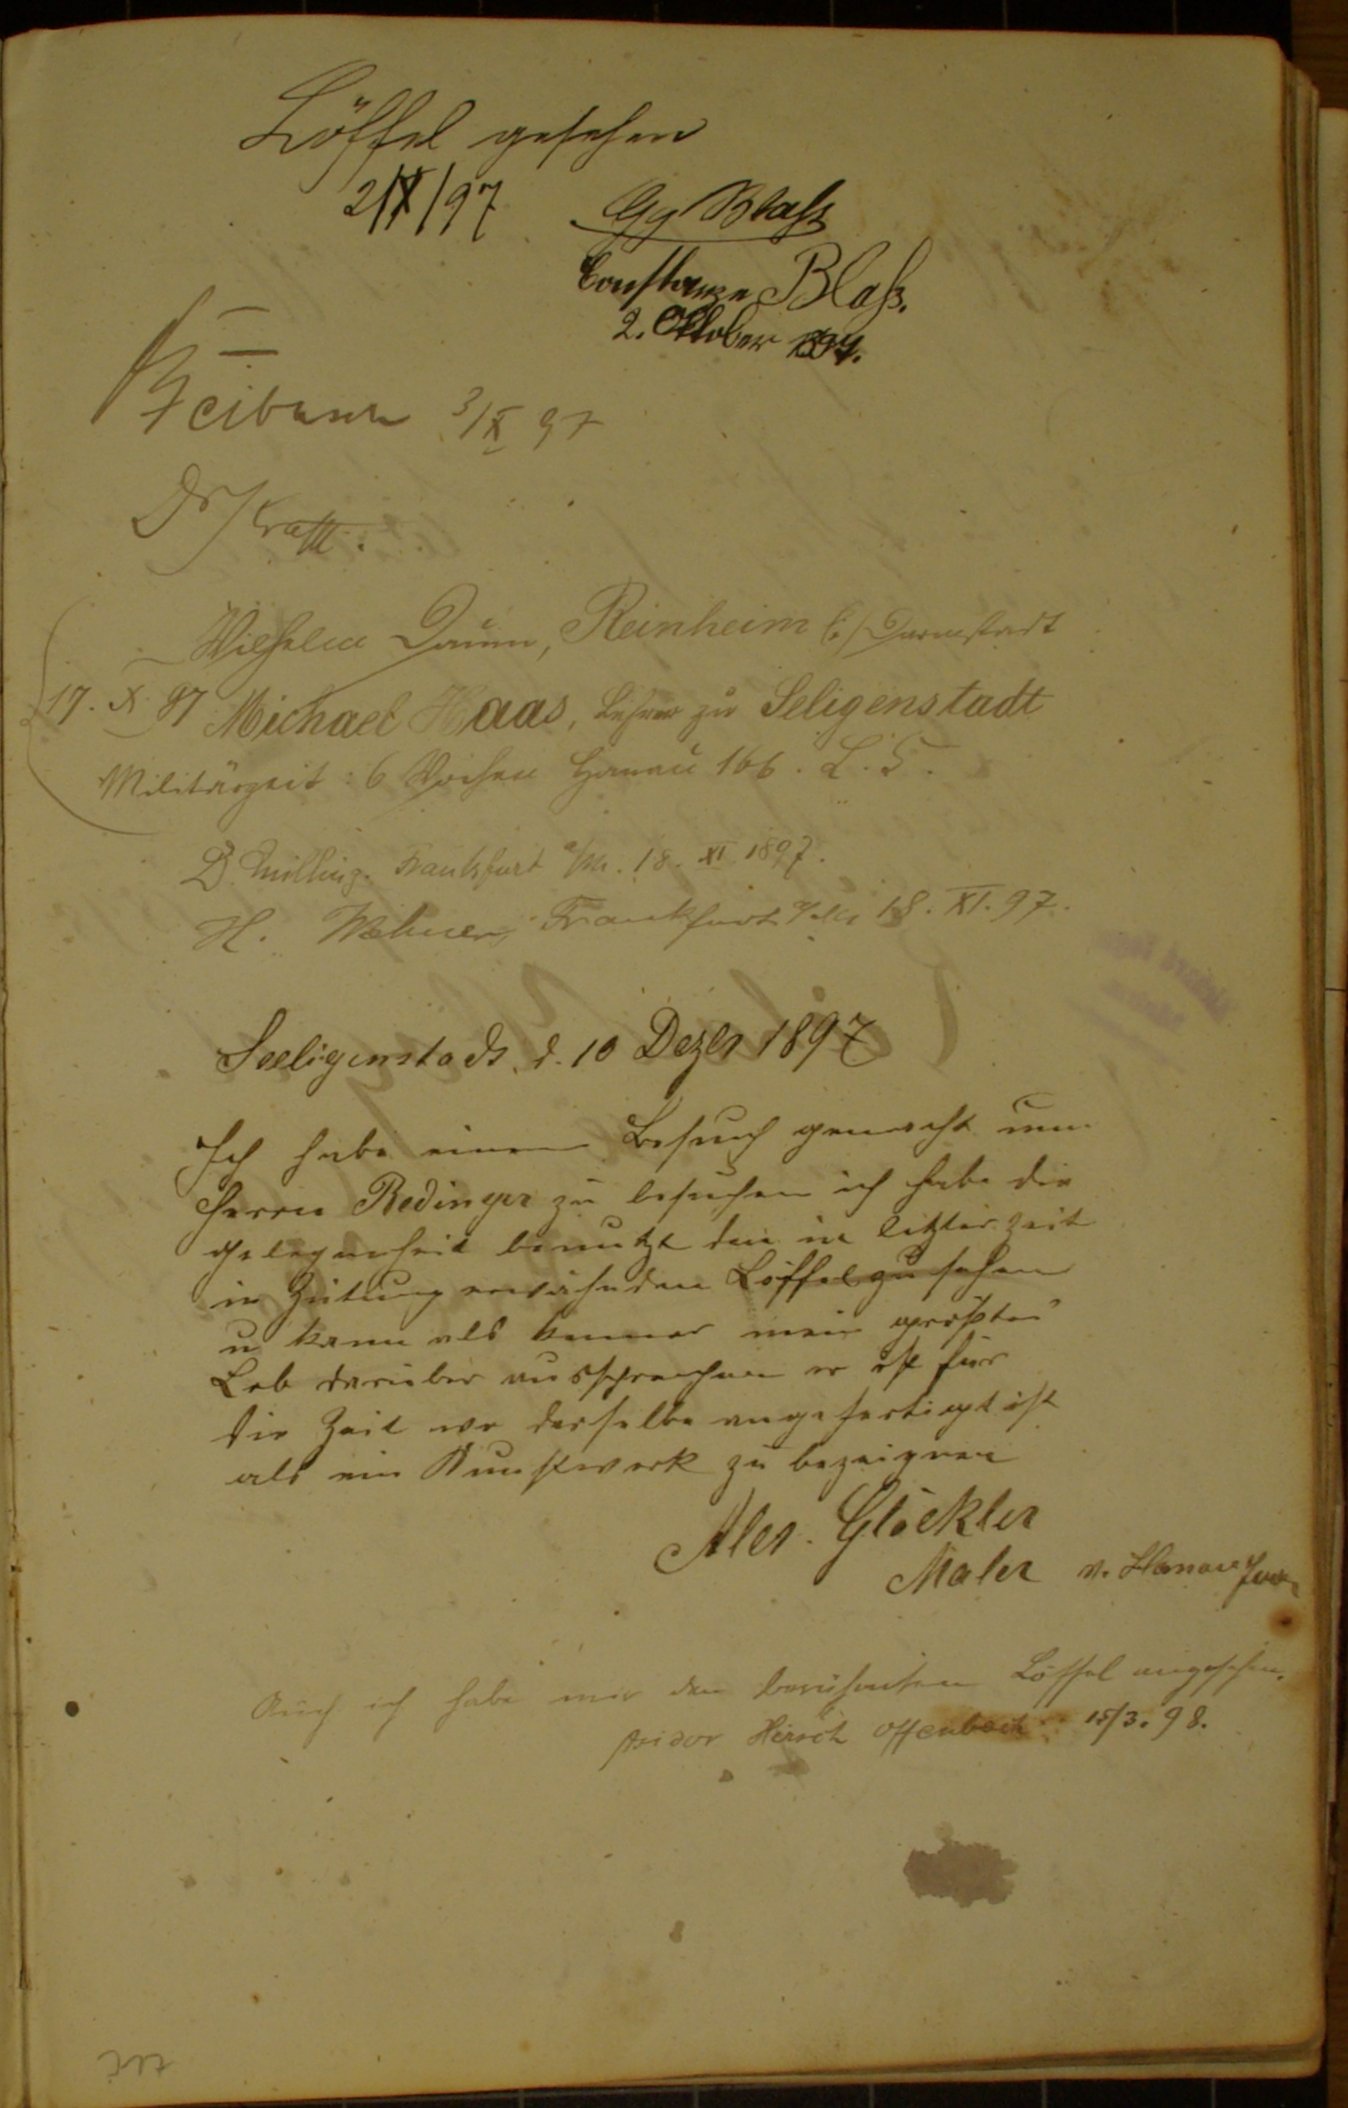 Löffel gesehen
2/X/97 Gg Blaß
Constanze Blaß.
2. Oktober 1897.
3/X 97
Dr Krafft.
Wilhelm Daum, Reinheim b/Darmstadt
17. X. 97 Michael Haas, Lehrer zu Seligenstadt
Militärzeit: 6 Wochen Hanau 166. L. S.
Frankfurt a/M. 18. XI 1897.
H. Frankfurt a/M 18. XI. 97.
Seeligenstadt, d. 10 Dezbr 1897
Ich habe einen Besuch gemacht um
Herrn Redinger zu besuchen ich habe die
Gelegenheit benutzt den in letzter Zeit
in Zeitung erwähnden Löffel zu sehen
u kann als Kenner mein größtes
Lob darüber aussprechen er ist für
die Zeit wo derselbe angefertigt ist
als ein Kunstwerk zu bezeignen
Alex. Glöckler
Maler v. Hanau
Auch ich habe mir den berühmten Löffel angesehen.
Isidor Hirsch Offenbach 15/3. 98.